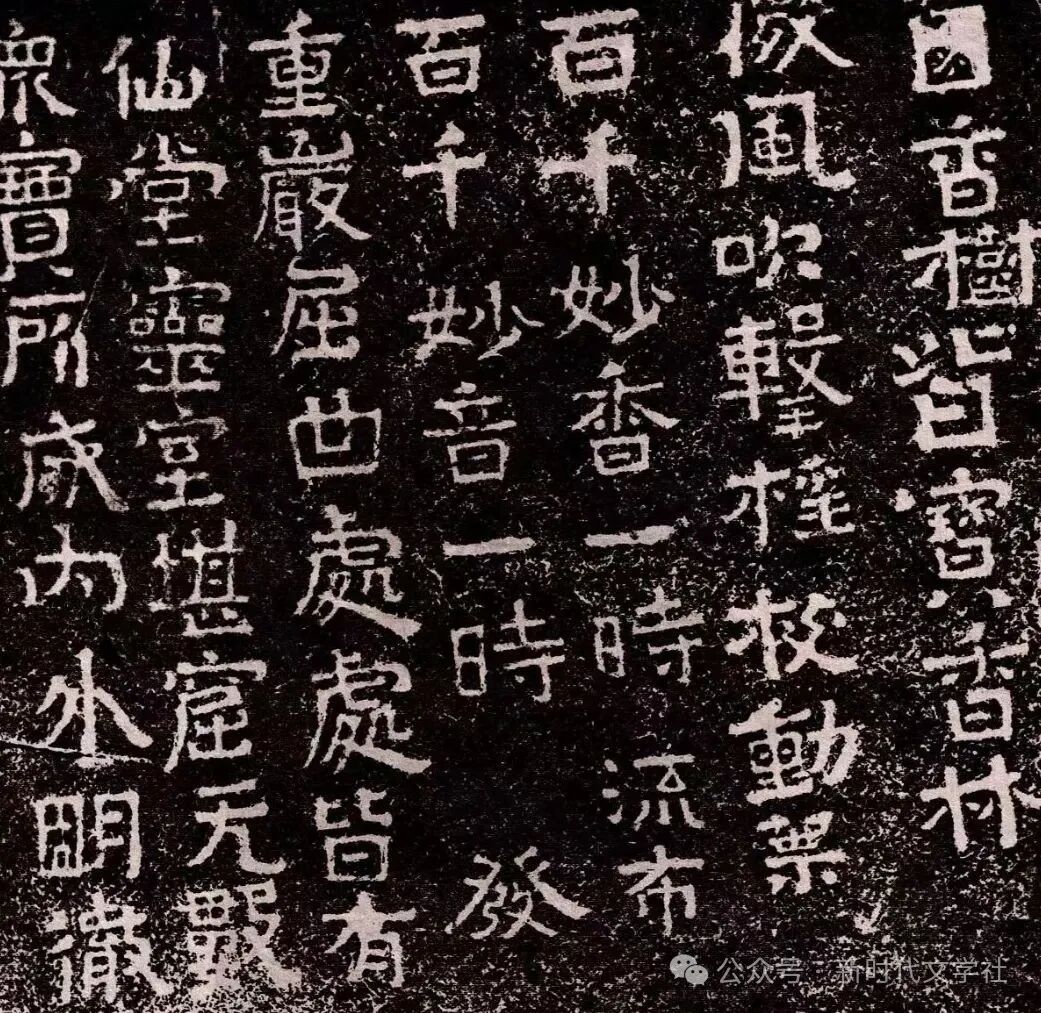 香樹皆寶香林
微風吹擊枝動葉
百千妙香一時流布
百千妙音一時發
重巖屈曲處處皆有
仙堂靈室堪窟无數
眾寶所成內外明徹
公众号·新时代文学社